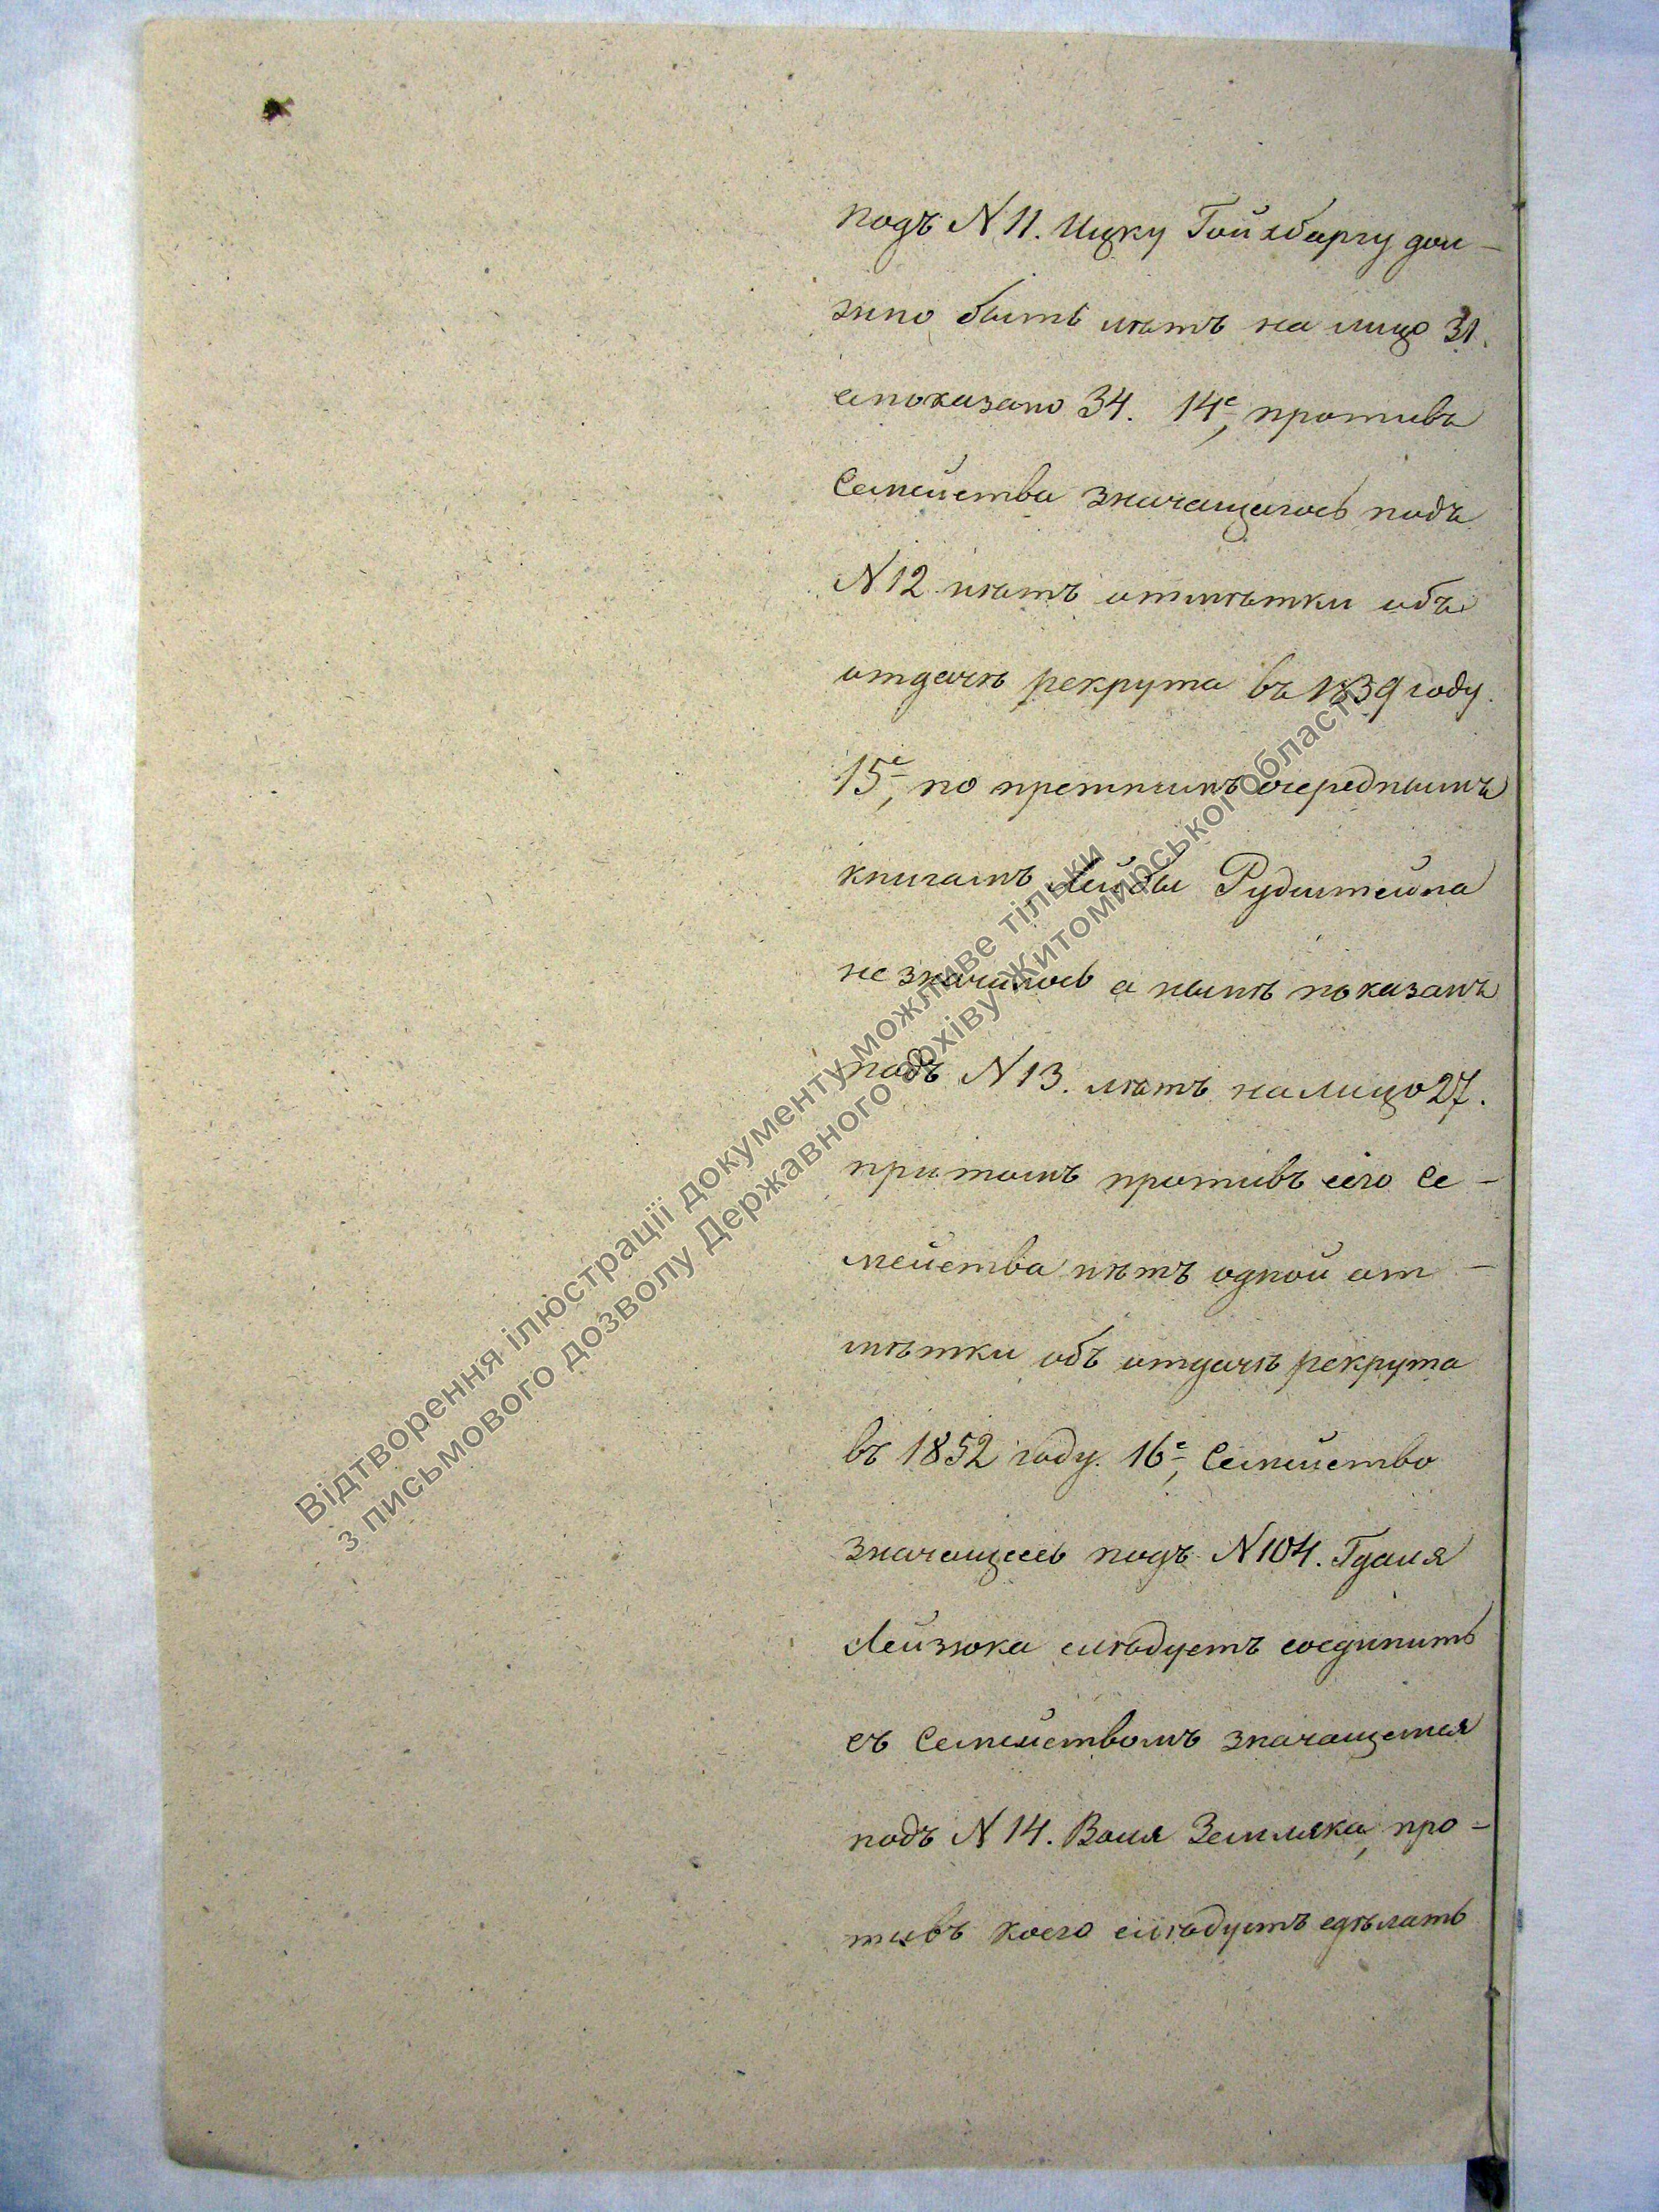 подъ N 11. Ицку Гойхбаргу дол-
жно быть лѣтъ на лицо 31.
а показано 34. 14е, противъ
Семейства значащагось подъ
N 12 нѣтъ отмѣтки объ
отдачѣ рекрута въ 1839 году.
15е, по претнимъ очереднымъ
книгамъ Лейбы Рудштейна
не значилось а нынѣ показанъ
подъ N 13. лѣтъ налицо 27.
притомъ противъ его Се-
мейства нѣтъ одной от-
мѣтки объ отдачѣ рекрута
въ 1852 году. 16е, Семейство
значащеесь подъ N 104. Гдаля
Лейзюка слѣдуетъ соединить
съ Семействомъ значащемся
подъ N 14. Воля Земляка, про-
тивъ коего слѣдуетъ сдѣлать
Відтворення ілюстрації документу можливе тільки
з письмового дозволу Державного архіву Житомирської області